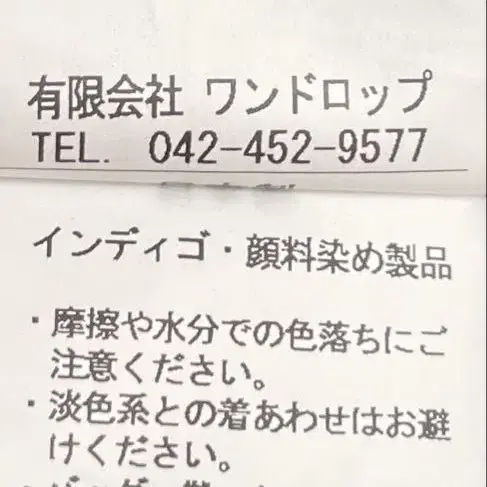 有限会社 ワンドロップ
TEL. 042-452-9577
インディゴ・顔料染め製品
・摩擦や水分での色落ちにご
注意ください。
・淡色系との着あわせはお避
けください。